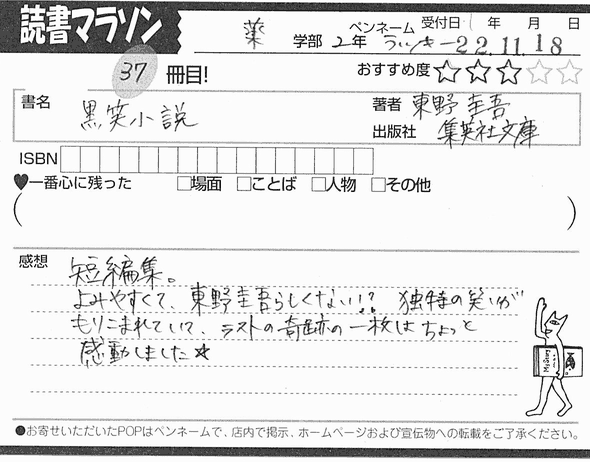 読書マラソン
薬 学部 2年 ペンネーム らいきー 受付日 年 月 日
22.11.18
37 冊目! おすすめ度 ☆☆☆☆☆
書名 黒笑小説
著者 東野圭吾
出版社 集英社文庫
ISBN
♥一番心に残った □場面 □ことば □人物 □その他
( )
感想 短編集。
よみやすくて、東野圭吾らしくない!? 独特の笑いが
もりこまれていて、ラストの奇跡の一枚はちょっと
感動しました☆
●お寄せいただいたPOPはペンネームで、店内で掲示、ホームページおよび宣伝物への転載をご了承ください。